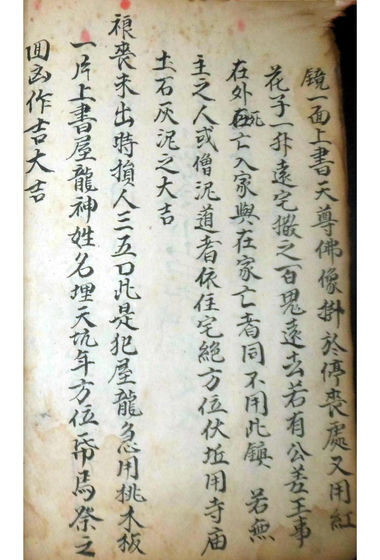 鏡一面上書天尊佛像掛於停喪處又用紅
花子一升遠宅撒之百鬼遠去若有公差王事
在外死亡入家與在家亡者同不用此鎮 若無
主之人或僧泥道者依住宅絕方位伏坵用寺庙
土石灰泥之大吉
喪未出時損人三五口此是犯屋龍急用桃木板
一片上書屋龍神姓名埋天坑年方位帋馬祭之
凶作吉大吉